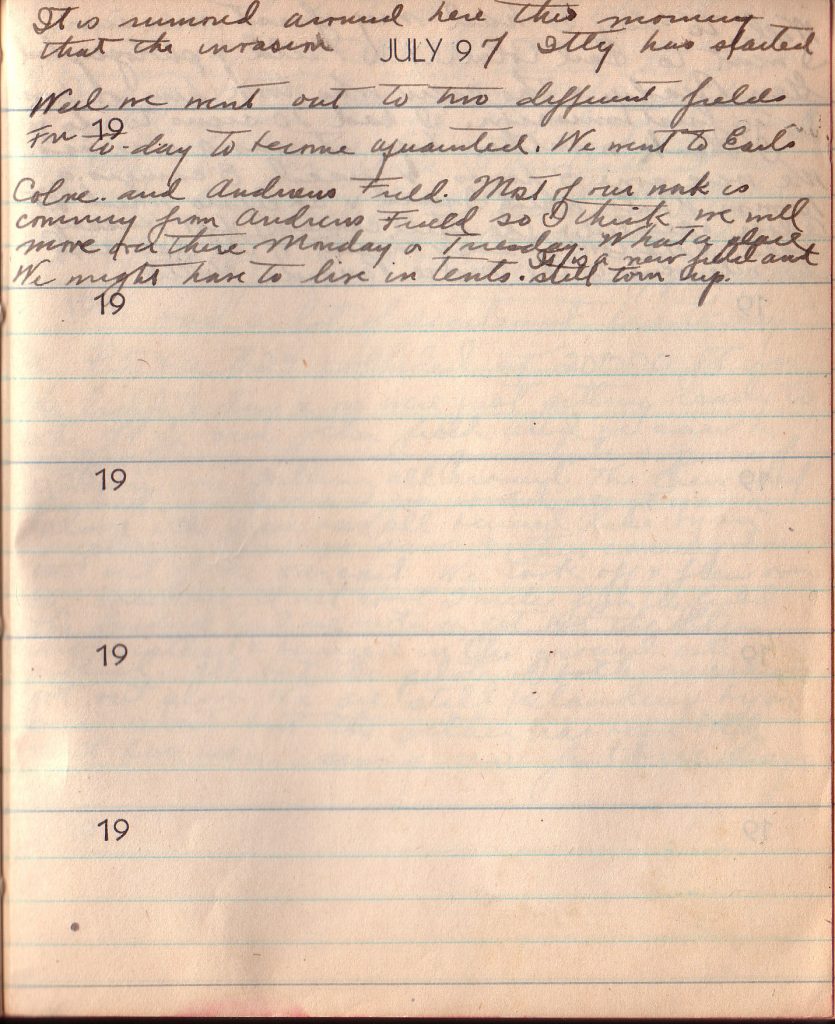 It is rumored around here this morning
that the invasion JULY 9 of Itly has started
Well we went out to two different fields
Fri 19 to-day to become aquainted. We went to Earls
Colne. and Andrews Field. Most of our work is
comming from Andrews Field so I think we will
move over there Monday or Tuesday. What a place
It is a new field and
We might have to live in tents. still torn up.
19
19
19
19